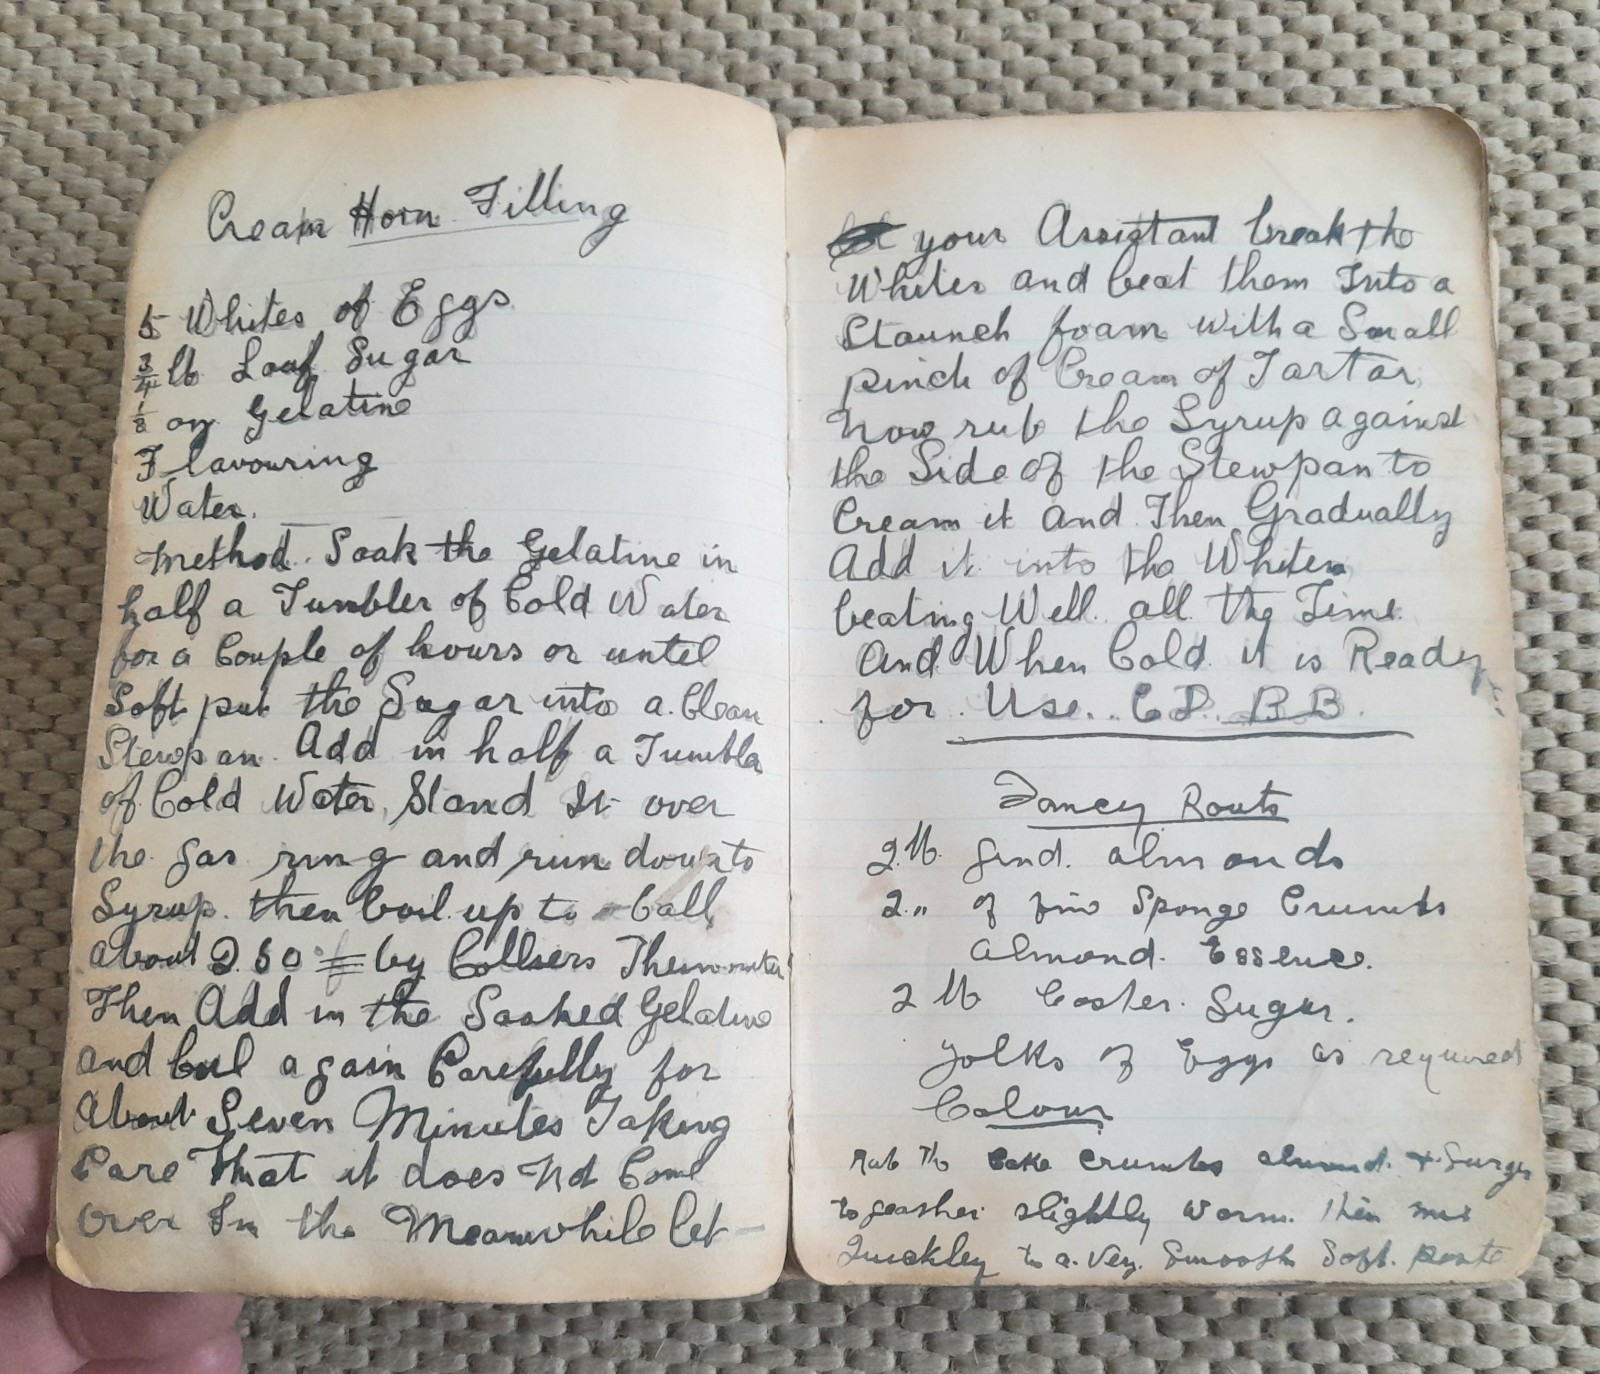 Cream Horn Filling
5 Whites of Eggs
3/4 lb Loaf Sugar
1/8 oz Gelatine
Flavouring
Water.
Method. Soak the Gelatine in
half a Tumbler of Cold Water
for a Couple of hours or until
Soft put the Sugar into a Clean
Stewpan. Add in half a Tumbla
of Cold Water, Stand It over
the gas ring and run down to
Syrup. then boil up to ball
about 250° by Thermometer
Then Add in the Soaked Gelatine
and boil again Carefully for
About Seven Minutes Taking
Care That it does Not Come
over In the Meanwhile let
your Assistant break the
Whites and beat them Into a
Staunch foam with a Small
pinch of Cream of Tartar,
Now rub the Syrup against
the Side of the Stewpan to
Cream it And Then Gradually
Add it into the Whites
beating Well all the Time.
And When Cold it is Ready
for Use. BB.
Fancy Routs
2 lb. grnd. almonds
2 " of fine Sponge Crumbs
Almond. Essence.
2 lb Caster. Sugar.
Yolks of Eggs as required
Colour
Rub the Cake Crumbs almond. + Surger
to geather slightly Worm. then mix
Quickley to a. Very. Smooth Soft. paste